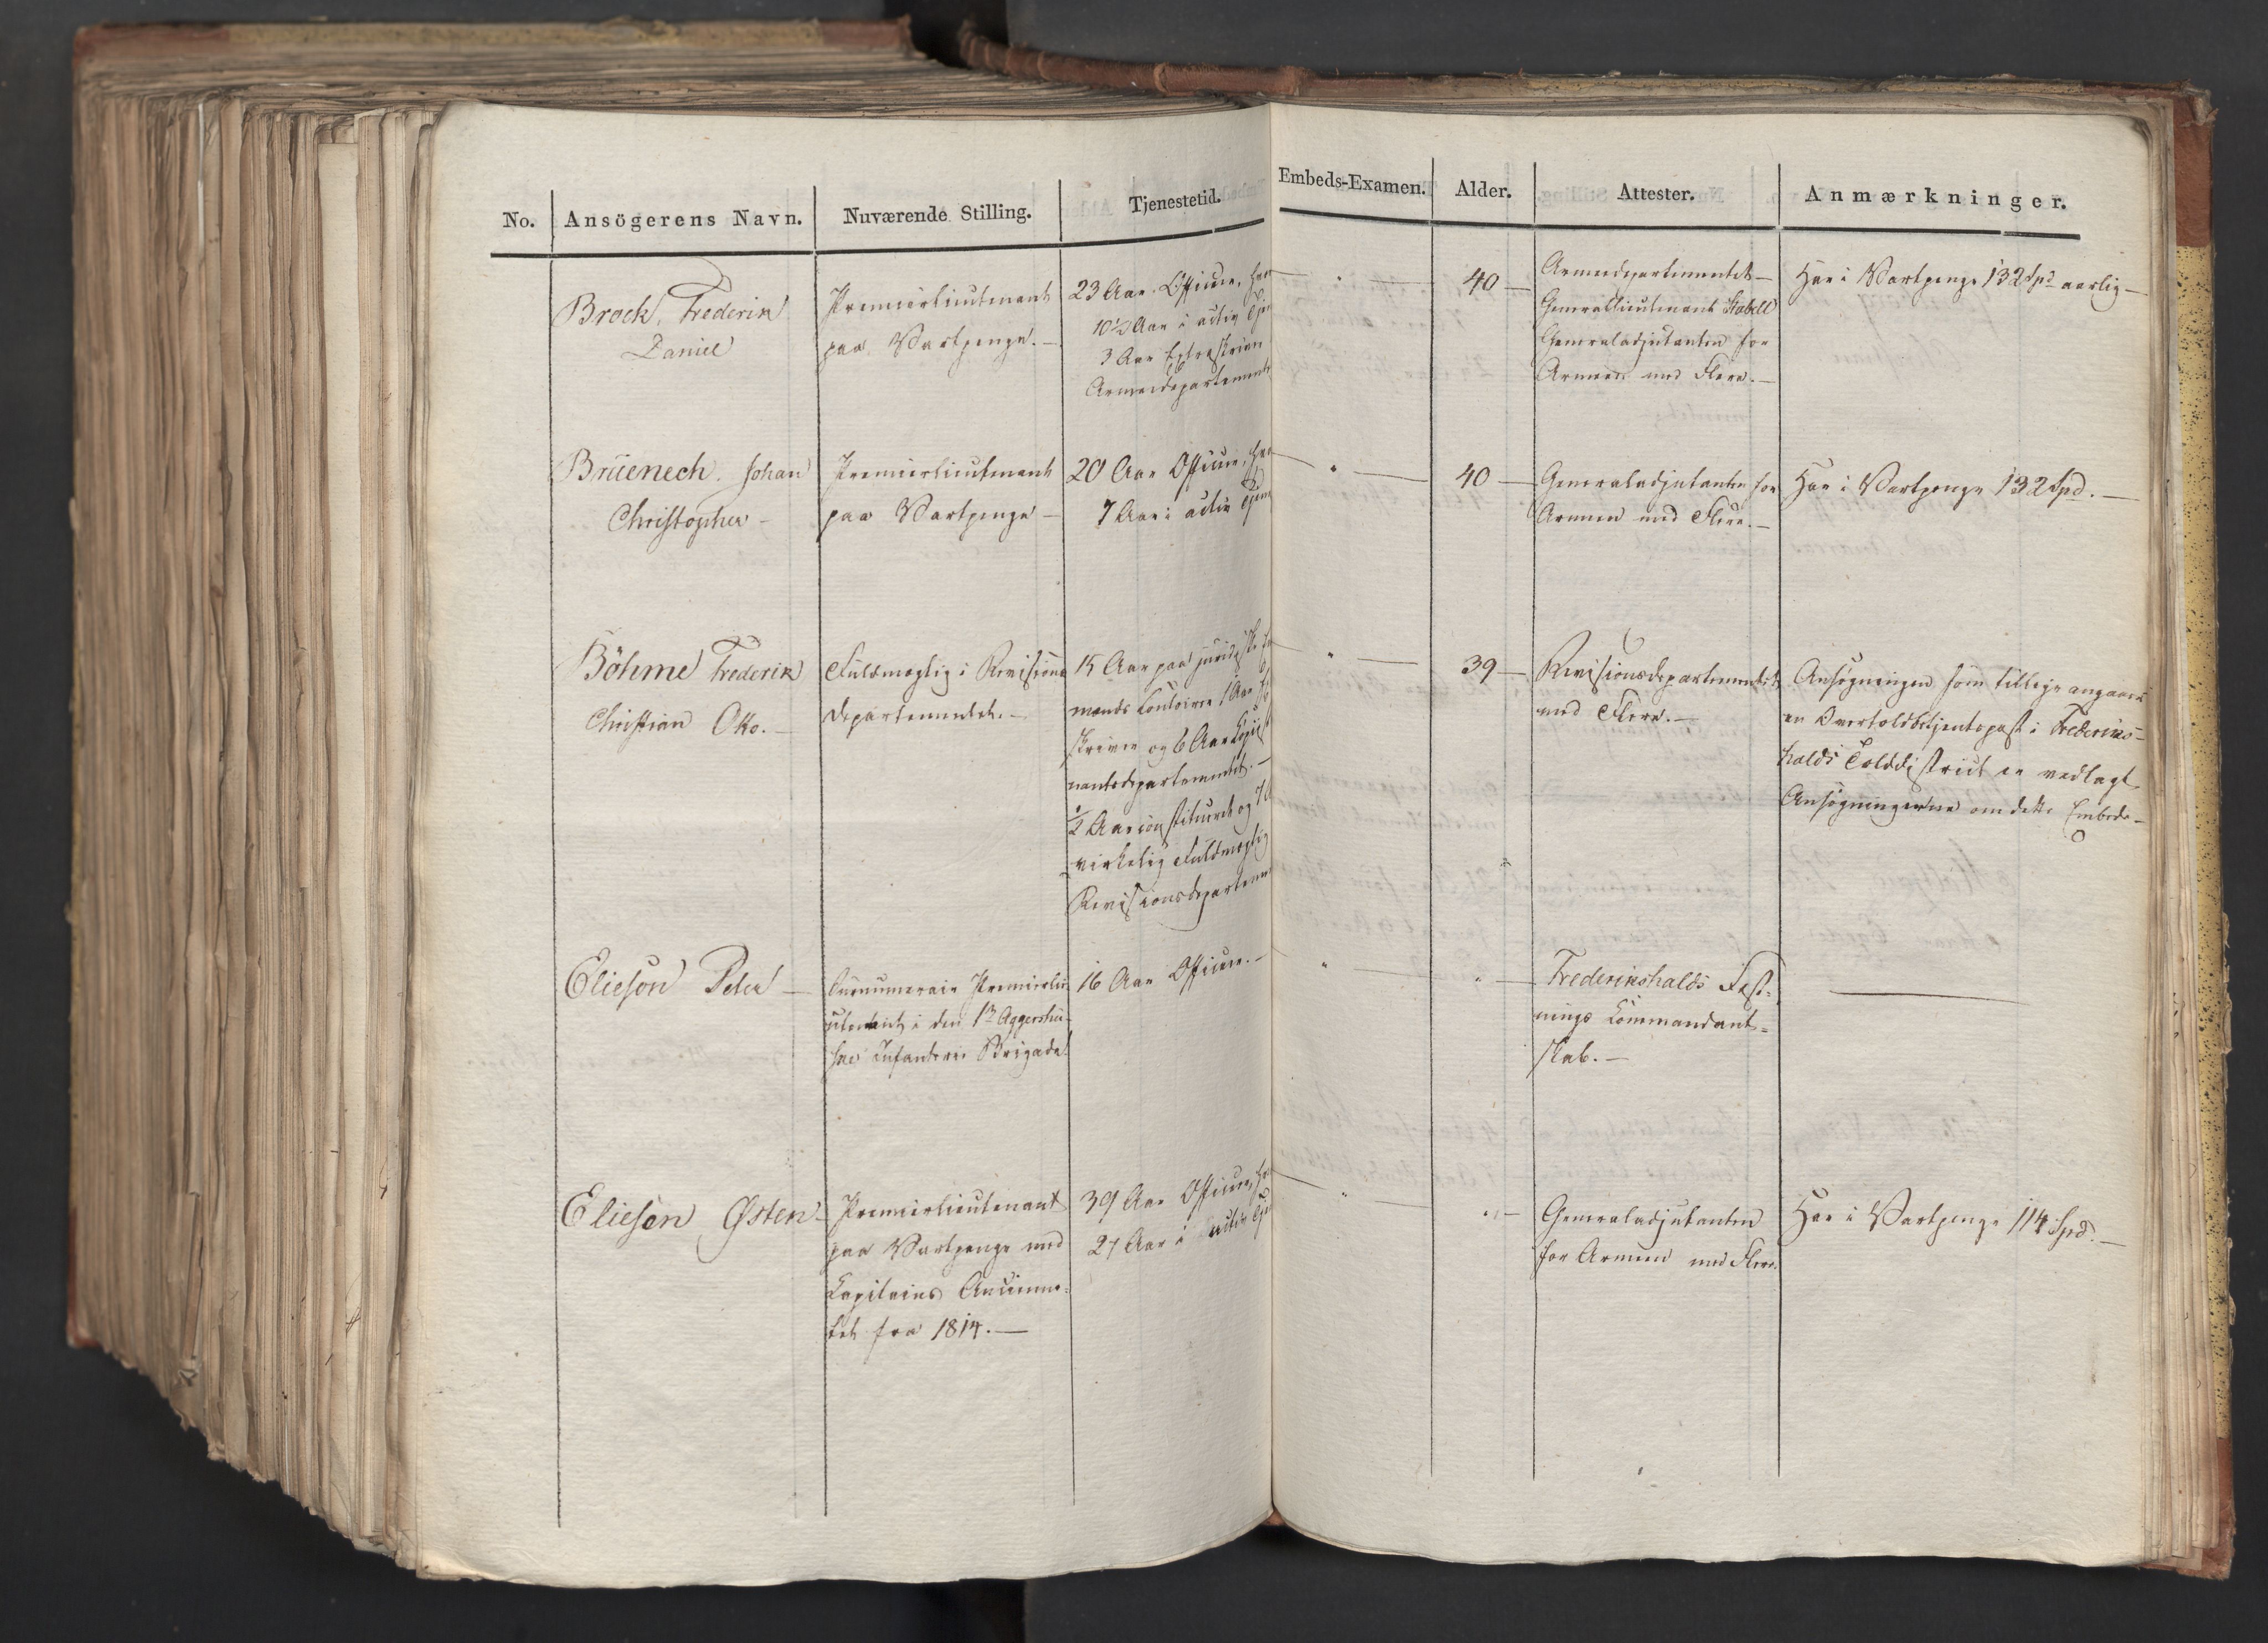 No. Ansögerens Navn. Nuværende Stilling. Tjenestetid. Embeds-Examen. Alder. Attester. Anmærkninger.
Brock, Frederik
Daniel
Premierlieutenant
paa Vartpenge. —
23 Aar Officier,
10 1/2 Aar i activ
3 Aar Extraskriver
Armeedepartement
" —
40 —
Armeedepartementet —
Generallieutenant Stabell
Generaladjutanten for
Armeen med Flere. —
Har i Vartpenge 132 Spd aarlig —
Brüenech, Johan
Christopher —
Premierlieutenant
paa Vartpenge —
20 Aar Officier,
7 Aar i activ
" —
40 —
Generaladjutanten for
Armeen med Flere. —
Har i Vartpenge 132 Spd. —
Böhme Frederik
Christian Otto. —
Fuldmægtig i Revisions
departementet. —
15 Aar paa juridiske
mænds Contoirer 1 Aar
skriver og 6 Aar Copiist
nantsdepartementet. —
1/2 Aar constitueret og 7
virkelig Fuldmægtig
Revisionsdepartement
" —
39 —
Revisionsdepartementet
med Flere. —
Ansøgningen som tillige angaaer
en Overtoldbetjentspost i Frederiks-
halds Tolddistrict er vedlagt
Ansøgningerne om dette Embede —
Elieson Peter —
Surnumerair Premierlie
utenant i den 1ste Aggershu-
siske Infanterie Brigade
16 Aar Officier. —
" —
" —
Frederikshalds Fæst-
nings Commandant-
skab. —
Elieson Østen —
Premierlieutenant
paa Vartpenge med
Capitains Ancienne-
tet fra 1814. —
39 Aar Officier,
27 Aar i activ
" —
" —
Generaladjutanten
for Armeen med Flere.
Har i Vartpenge 114 Spd. —